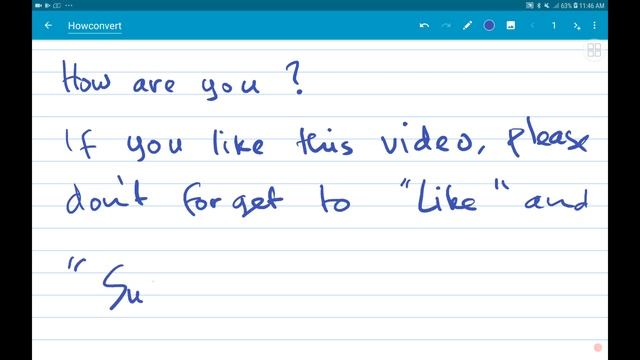 11:46 AM
63%
Howconvert
1
How are you?
If you like this video, please
don't forget to "Like" and
" Su